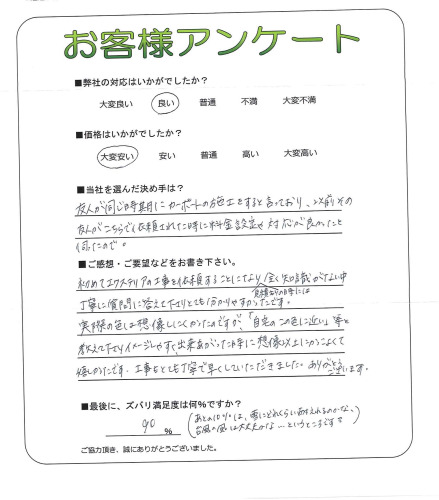 お客様アンケート
■弊社の対応はいかがでしたか？
大変良い 良い 普通 不満 大変不満
■価格はいかがでしたか？
大変安い 安い 普通 高い 大変高い
■当社を選んだ決め手は？
友人が同じ時期にカーポートの施工をすると言っており、以前その
友人がこちらで依頼された時に料金設定や対応が良かったと
伺ったので。
■ご感想・ご要望などをお書き下さい。
初めてエクステリアの工事を依頼することになり、全く知識がない中
見積もりの時には
丁寧に質問に答えて下さりとても分かりやすかったです。
実際の色は想像しにくかったのですが、「自宅のこの色に近い」等と
教えて下さりイメージしやすく、出来あがった時に想像以上にかっこよくて
嬉しかったです。工事もとても丁寧で早くしていただきました。ありがとう
ございます。
■最後に、ズバリ満足度は何％ですか？
90 ％
(あとの10％は、雪にどれくらい耐えれるのかな、
台風の風は大丈夫かな…というところです)
ご協力頂き、誠にありがとうございました。